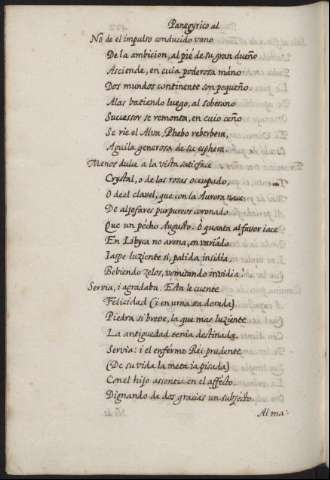 Panegyrico al
No de el impulso conducido vano
De la ambicion, al pie de su gran dueño
Asciende, en cuia poderosa mano
Dos mundos continente son pequeño.
Alas batiendo luego, al soberano
Sucessor se remonta, en cuio ceño
Se rie el Alva, Phebo reberbera,
Aguila generosa de su esphera.
Menos dulce a la vista satisface
Crystal, o de las rosas ocupado,
O de el clavel, que con la Aurora nace
De aljofares purpureos coronado
Que un pecho Augusto. ô quanta al favor iace
En Libyca no arena, en variado
Iaspe luziente si, palida insidia,
Bebiendo zelos, vomitando invidia.
Servia, i agradaba. Esta le cuente
Felicidad (i en urna sea dorada)
Piedra si breve, la que mas luziente
La antiguedad tenia destinada.
Servia: i el enfermo Rei prudente
(De su vida la meta ia pisada)
Con el hijo assentia en el affecto.
Dignando de dos gracias un subjecto.
Alma: